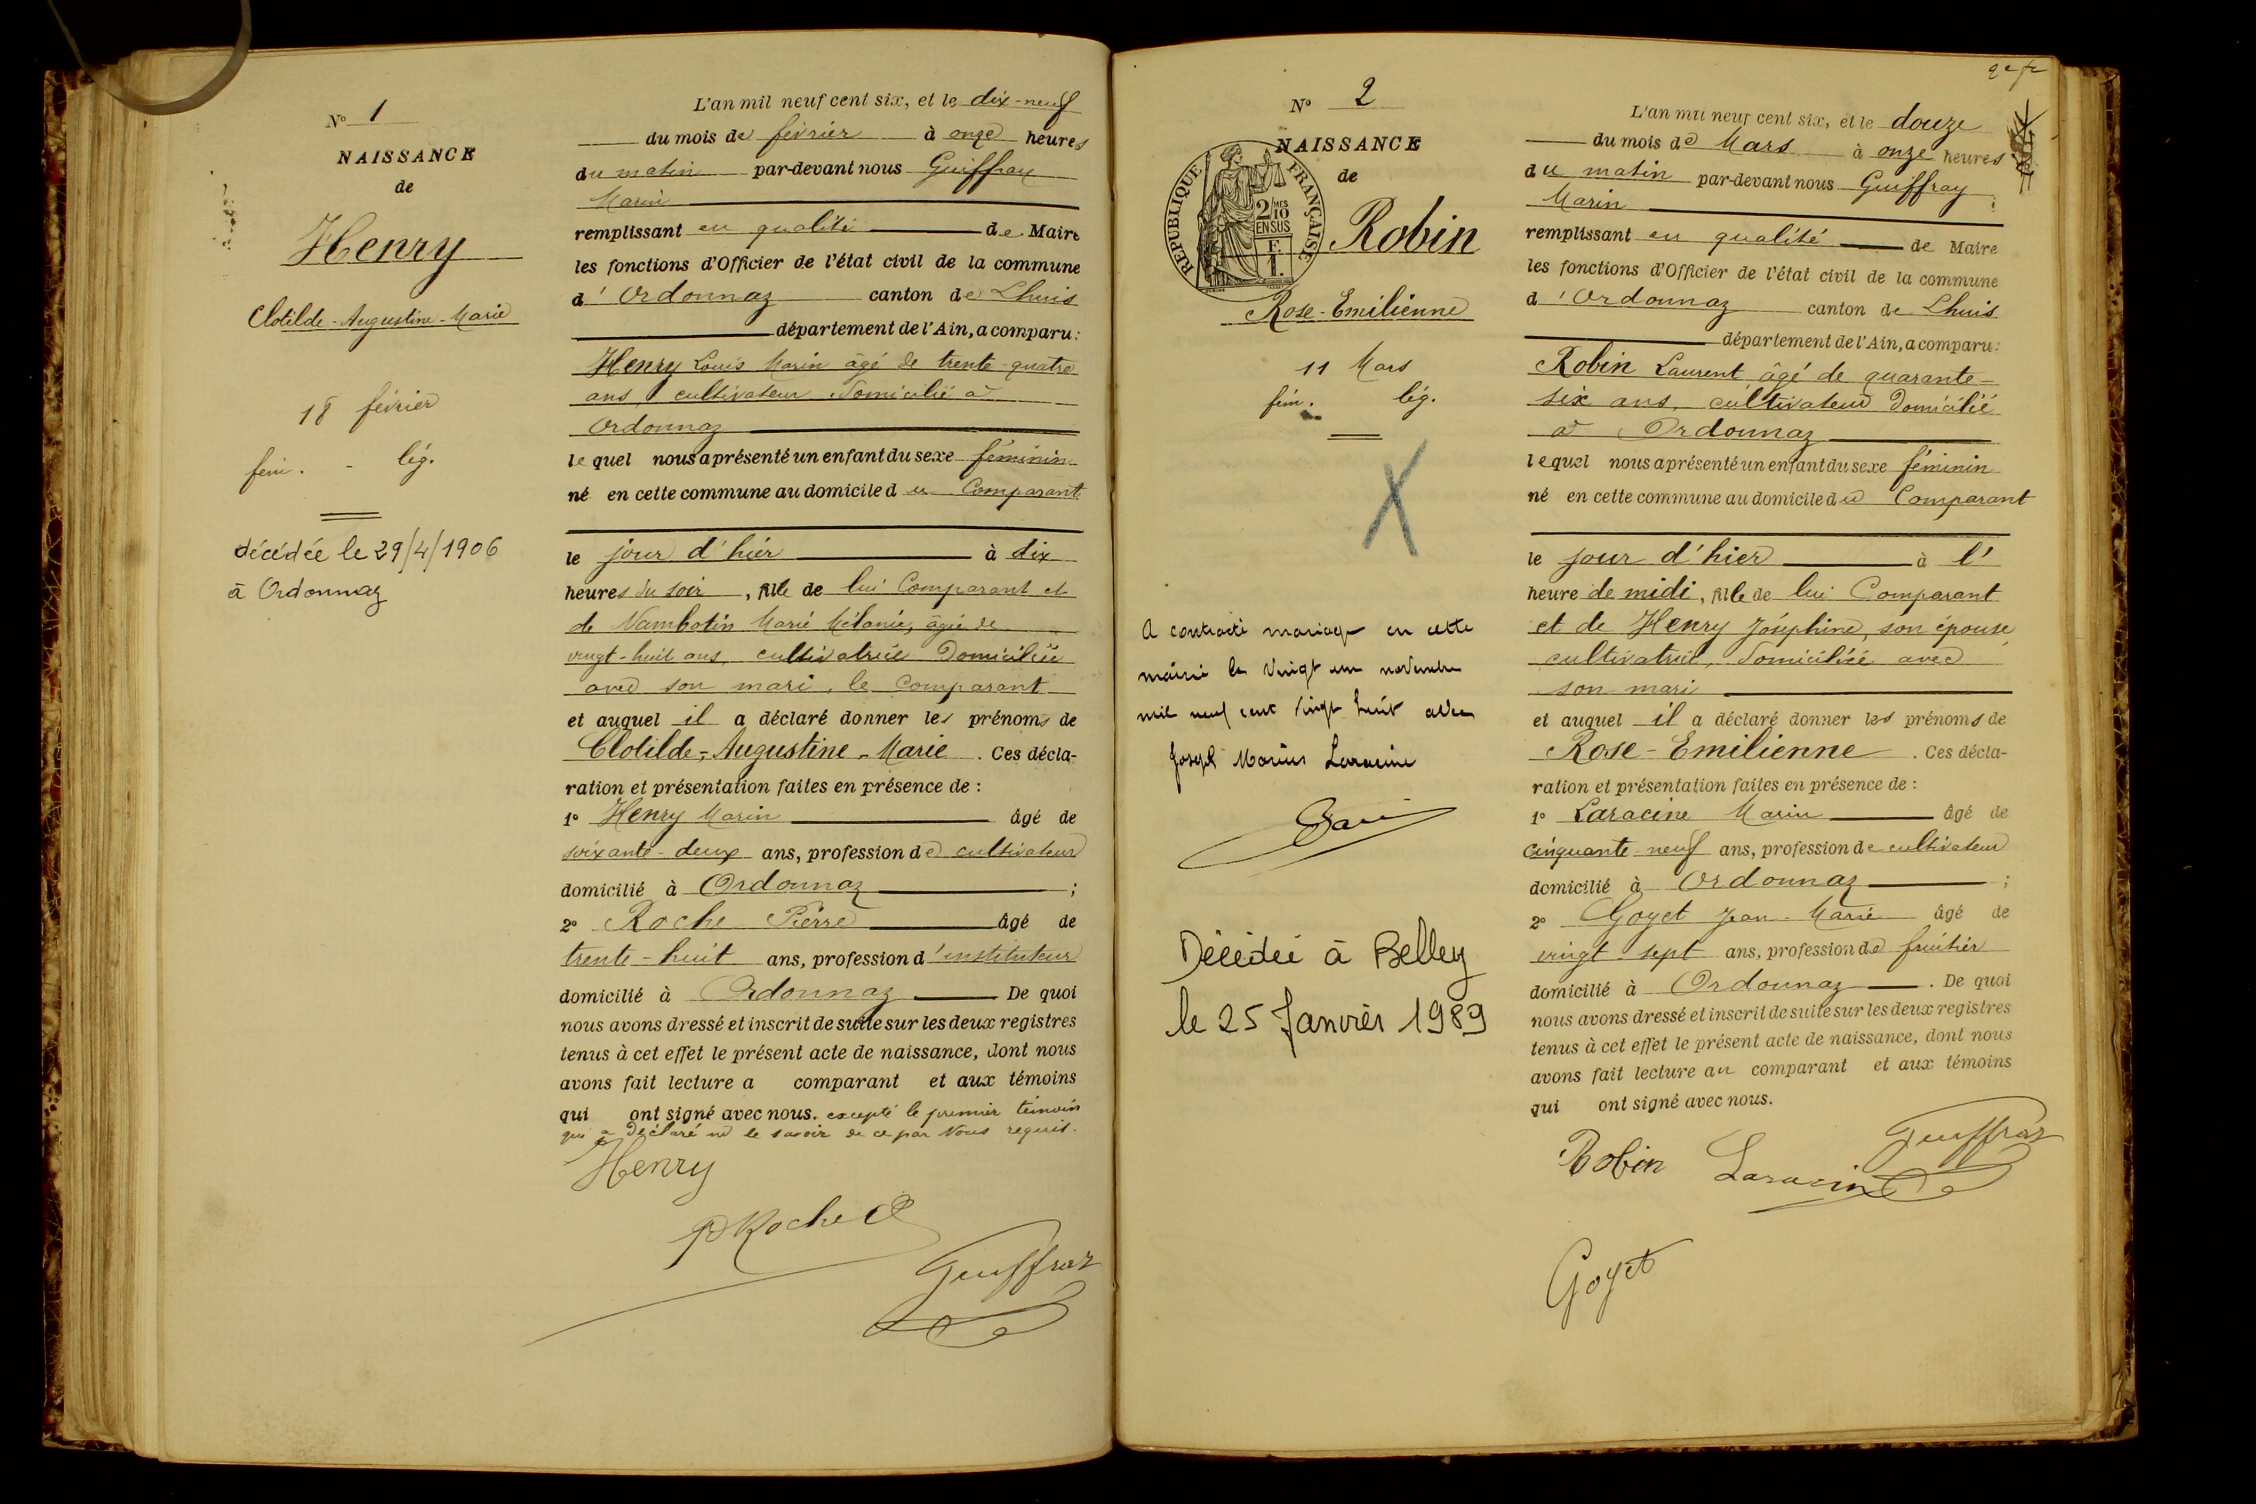 N° 1
NAISSANCE
de
Henry
Clotilde-Augustine-Marie
18 février
fém. - lég.
décédée le 29/4/1906
à Ordonnaz
L'an mil neuf cent six, et le dix-neuf
du mois de février à onze heures
du matin par-devant nous Guiffray
Marin
remplissant en qualité de Maire
les fonctions d'Officier de l'état civil de la commune
d'Ordonnaz canton de Lhuis
département de l'Ain, a comparu :
Henry Louis Marin âgé de trente-quatre
ans, cultivateur domicilié à
Ordonnaz
lequel nous a présenté un enfant du sexe féminin
né en cette commune au domicile du Comparant
le jour d'hier à dix
heures du soir, fille de lui Comparant et
de Nambotin Marie Mélanie, âgée de
vingt-huit ans, cultivatrice domiciliée
avec son mari, le Comparant
et auquel il a déclaré donner les prénoms de
Clotilde-Augustine-Marie. Ces décla-
ration et présentation faites en présence de :
1° Henry Marin âgé de
soixante-deux ans, profession de cultivateur
domicilié à Ordonnaz ;
2° Roche Pierre âgé de
trente-huit ans, profession d'instituteur
domicilié à Ordonnaz De quoi
nous avons dressé et inscrit de suite sur les deux registres
tenus à cet effet le présent acte de naissance, dont nous
avons fait lecture a comparant et aux témoins
qui ont signé avec nous. excepté le premier témoin
qui a déclaré ne le savoir de ce par Nous requis.
Henry
P Roche
Guiffray
N° 2
NAISSANCE
de
RÉPUBLIQUE FRANÇAISE
2/10 MES
EN SUS
F.
1.
Robin
Rose-Emilienne
11 Mars
fém. lég.
X
A contracté mariage en cette
mairie le vingt un novembre
mil neuf cent vingt huit avec
Joseph Marius Laracine
Décédée à Belley
le 25 Janvier 1989
L'an mil neuf cent six, et le douze
du mois de Mars à onze heures
du matin par-devant nous Guiffray
Marin
remplissant en qualité de Maire
les fonctions d'Officier de l'état civil de la commune
d'Ordonnaz canton de Lhuis
département de l'Ain, a comparu :
Robin Laurent âgé de quarante-
six ans, cultivateur domicilié
à Ordonnaz
lequel nous a présenté un enfant du sexe féminin
né en cette commune au domicile du Comparant
le jour d'hier à l'
heure de midi, fille de lui Comparant
et de Henry Joséphine, son épouse
cultivatrice, domiciliée avec
son mari
et auquel il a déclaré donner les prénoms de
Rose-Emilienne. Ces décla-
ration et présentation faites en présence de :
1° Laracine Marin âgé de
cinquante-neuf ans, profession de cultivateur
domicilié à Ordonnaz ;
2° Goyet Jean-Marie âgé de
vingt sept ans, profession de fruitier
domicilié à Ordonnaz. De quoi
nous avons dressé et inscrit de suite sur les deux registres
tenus à cet effet le présent acte de naissance, dont nous
avons fait lecture au comparant et aux témoins
qui ont signé avec nous.
Robin Laracine Guiffray
Goyet